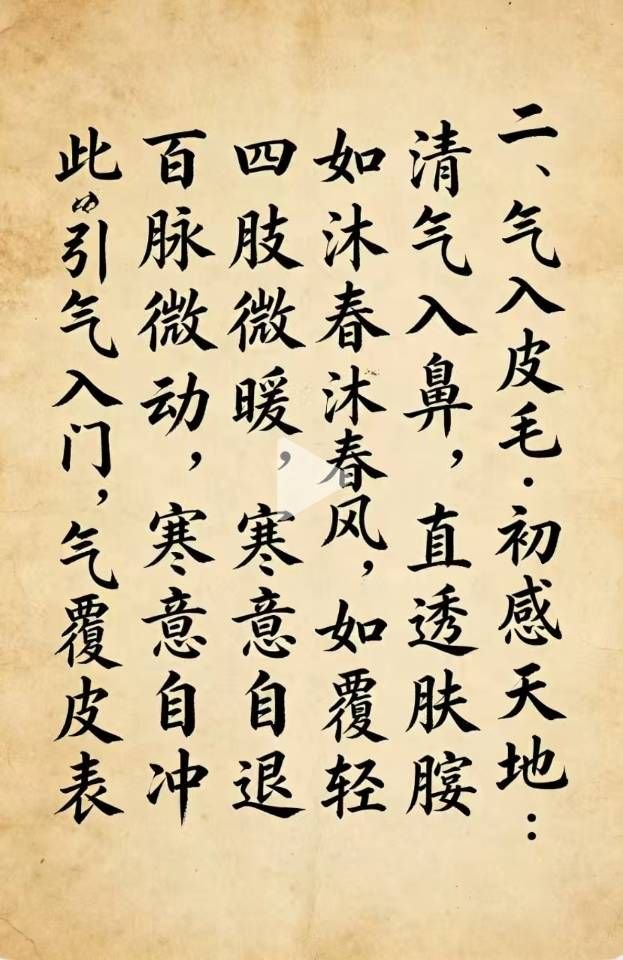 二、气入皮毛·初感天地：
清气入鼻，直透肤
如沐春沐春风，如覆轻
四肢微暖，寒意自退
百脉微动，寒意自冲
此引气入门，气覆皮表